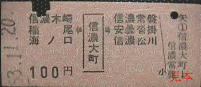 信濃木崎
稲尾
海ノ口
信濃大町
信濃常盤
安曇沓掛
信濃松川
100円
53.11.20
①
信濃大町
小
見本